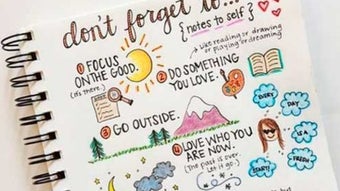 don't forget to...
{notes to self}
① FOCUS
ON THE GOOD.
(it's there.)
② DO SOMETHING
YOU LOVE.
↳ Like reading or drawing
or playing or dreaming
③ GO OUTSIDE.
④ LOVE WHO YOU
ARE NOW.
(The past is over.
Let it go.)
EVERY
DAY
IS A
FRESH
START!